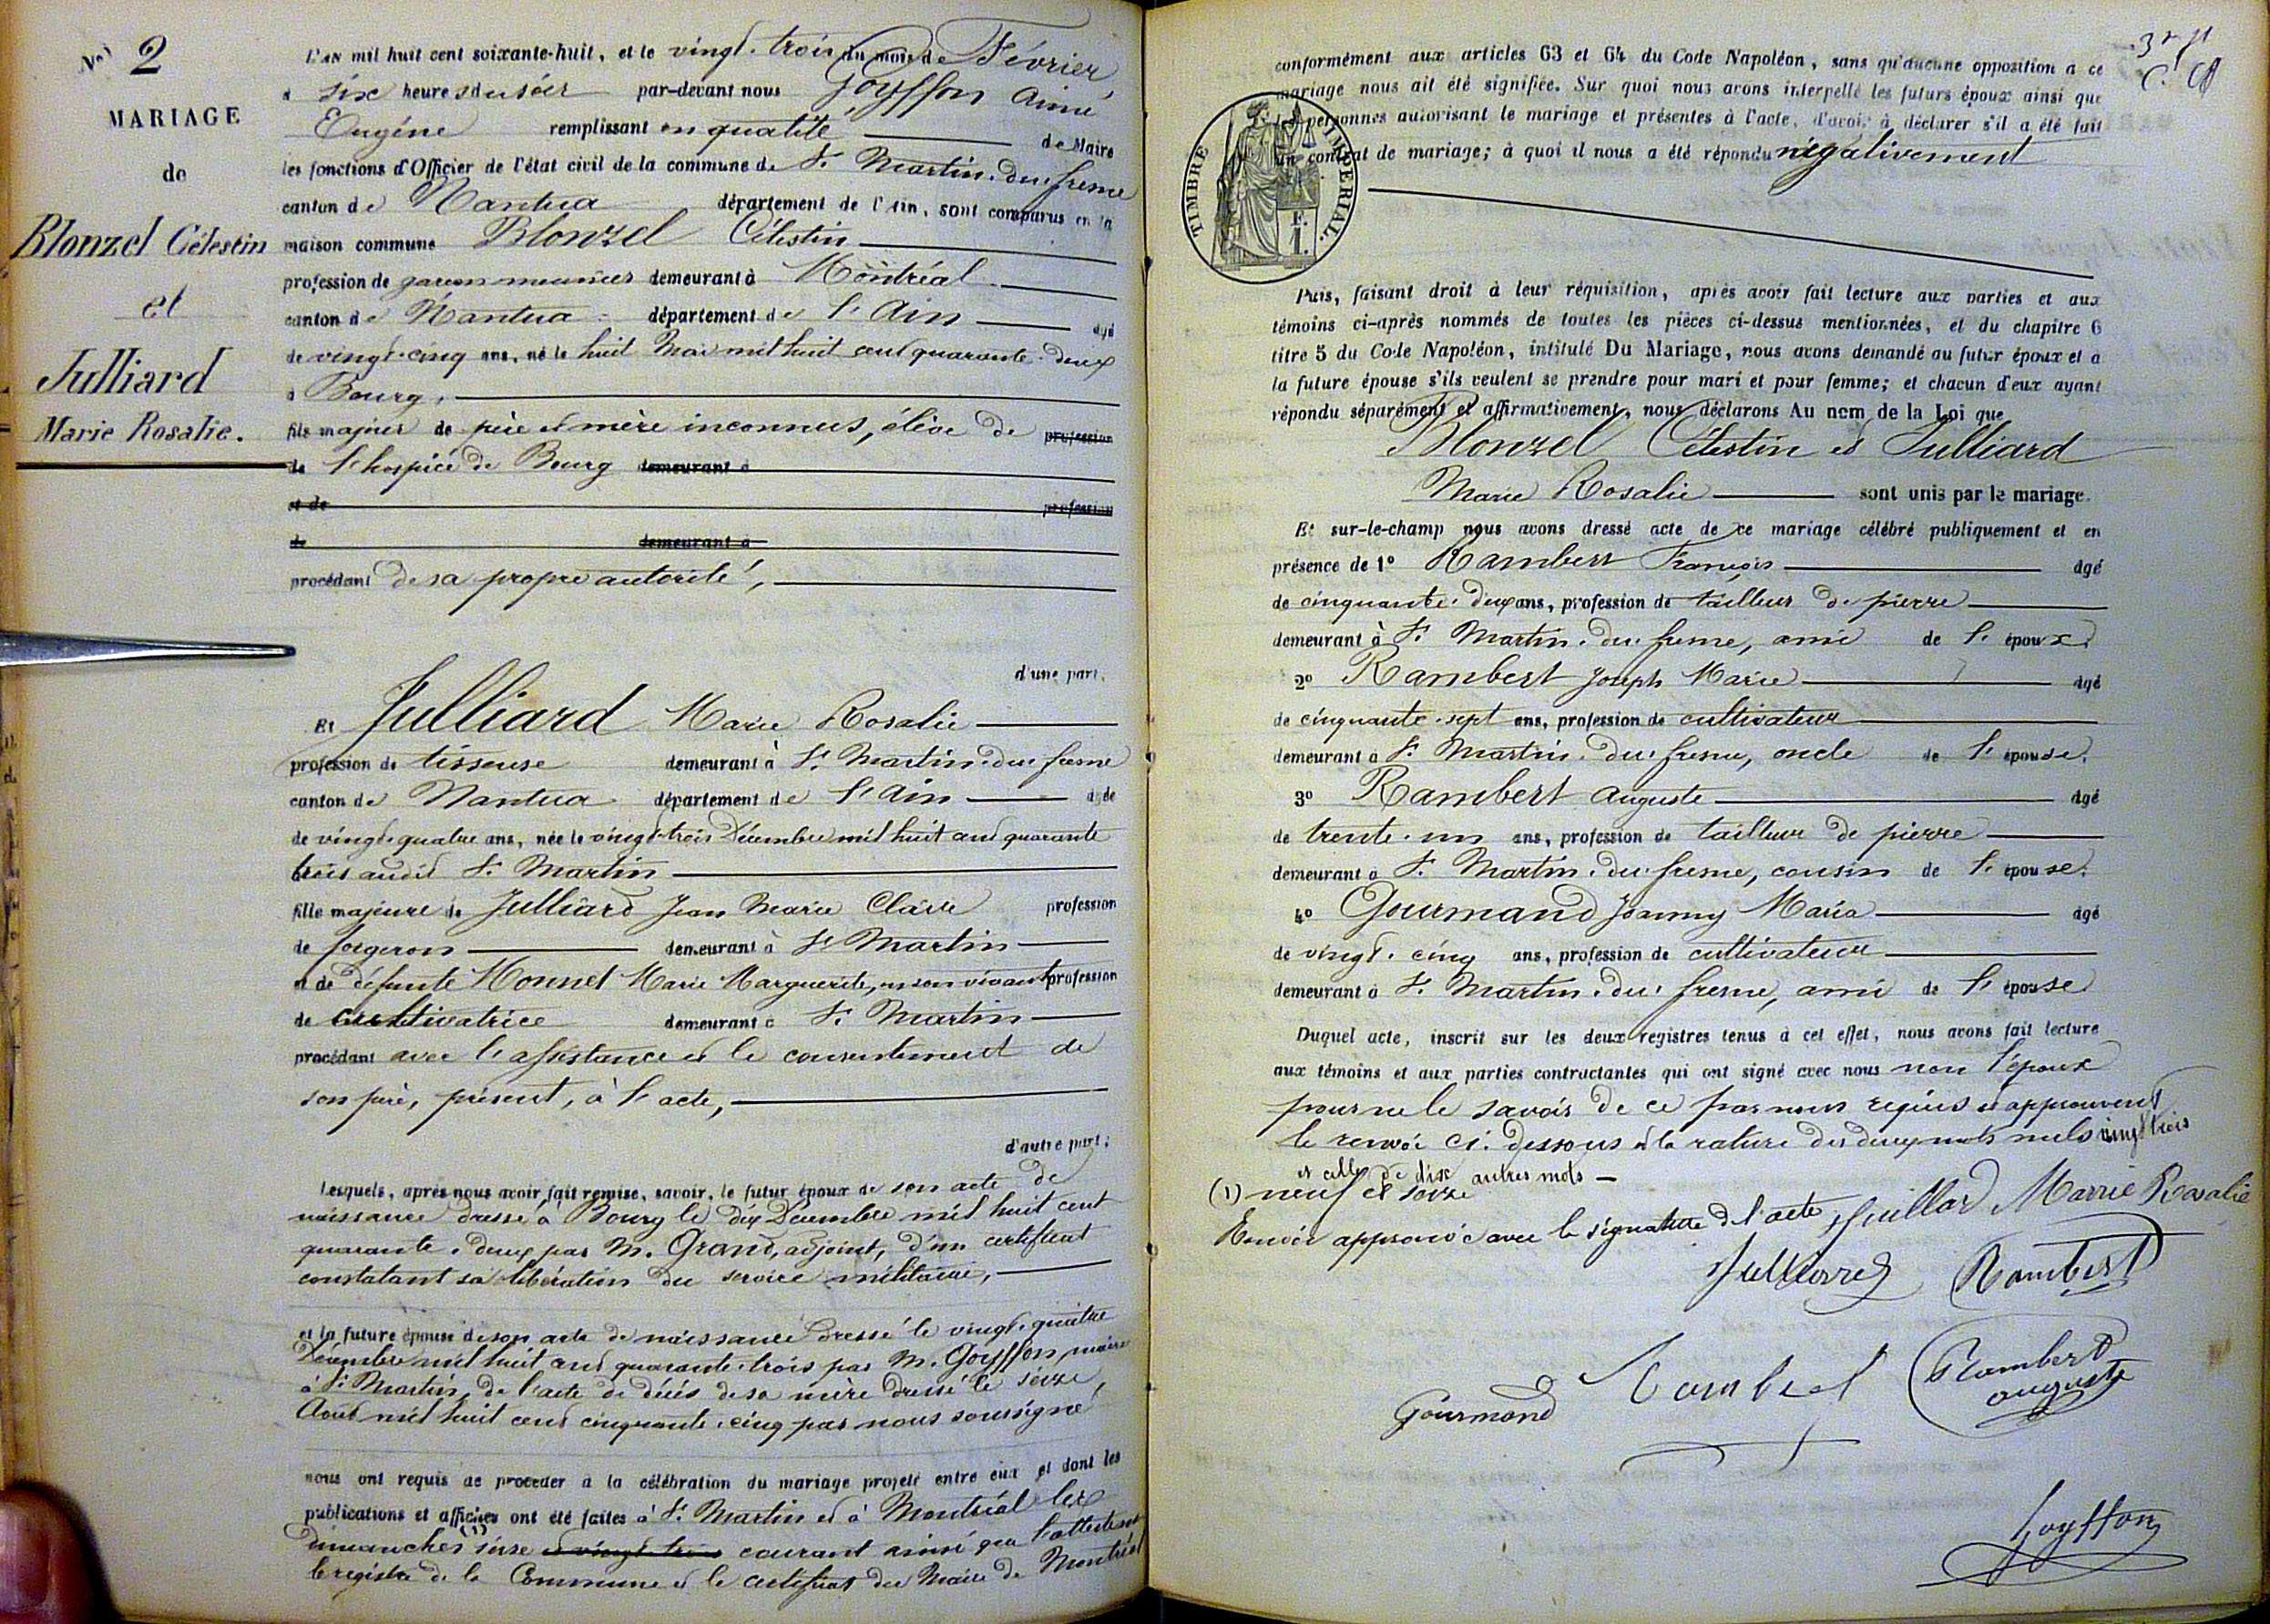 No 2
MARIAGE
de
Blonzel Célestin
et
Julliard
Marie Rosalie.
L'AN mil huit cent soixante-huit, et le vingt-trois du mois de Février,
à six heures du soir par-devant nous Goyffon Aimé
Eugène remplissant en qualité de Maire
les fonctions d'Officier de l'état civil de la commune de St Martin-du-fresne
canton de Nantua département de l'Ain, sont comparus en la
maison commune Blonzel Célestin
profession de garçon meunier demeurant à Montréal
canton de Nantua département de l'Ain âgé
de vingt-cinq ans, né le huit Mai mil huit cent quarante-deux
à Bourg,
fils majeur de père et mère inconnus, élève de profession
de l'hospice de Bourg demeurant à
et de profession
de demeurant à
procédant de sa propre autorité,
d'une part.
Et Julliard Marie Rosalie
profession de tisseuse demeurant à St Martin-du-fresne
canton de Nantua département de l'Ain âgée
de vingt-quatre ans, née le vingt-trois Décembre mil huit cent quarante
trois audit St Martin
fille majeure de Julliard Jean Marie Claire profession
de forgeron demeurant à St Martin
et de défunte Monnet Marie Marguerite, en son vivant profession
de cultivatrice demeurant à St Martin
procédant avec l'assistance et le consentement de
son père, présent, à l'acte,
d'autre part;
Lesquels, après nous avoir fait remise, savoir, le futur époux de son acte de
naissance dressé à Bourg le dix Décembre mil huit cent
quarante-deux par M. Grand, adjoint, d'un certificat
constatant sa libération du service militaire,
et la future épouse de son acte de naissance dressé le vingt-quatre
Décembre mil huit cent quarante-trois par M. Goyffon, maire
à St Martin, de l'acte de décès de sa mère dressé le seize
Août mil huit cent cinquante-cinq par nous soussigné,
nous ont requis de procéder à la célébration du mariage projeté entre eux et dont les
publications et affiches ont été faites à St Martin et à Montréal les
dimanches (1) seize et vingt trois courant ainsi que l'attestent
le registre de la Commune et le certificat du Maire de Montréal
conformément aux articles 63 et 64 du Code Napoléon, sans qu'aucune opposition à ce
mariage nous ait été signifiée. Sur quoi nous avons interpellé les futurs époux ainsi que
les personnes autorisant le mariage et présentes à l'acte, d'avoir à déclarer s'il a été fait
un contrat de mariage; à quoi il nous a été répondu négativement
TIMBRE IMPERIAL
F.
1.
Puis, faisant droit à leur réquisition, après avoir fait lecture aux parties et aux
témoins ci-après nommés de toutes les pièces ci-dessus mentionnées, et du chapitre 6
titre 5 du Code Napoléon, intitulé Du Mariage, nous avons demandé au futur époux et à
la future épouse s'ils veulent se prendre pour mari et pour femme; et chacun d'eux ayant
répondu séparément et affirmativement, nous déclarons Au nom de la Loi que
Blonzel Célestin et Julliard
Marie Rosalie sont unis par le mariage.
Et sur-le-champ nous avons dressé acte de ce mariage célébré publiquement et en
présence de 1º Rambert François âgé
de cinquante-deux ans, profession de tailleur de pierre
demeurant à St Martin-du-fresne, ami de l'époux
2º Rambert Joseph Marie âgé
de cinquante-sept ans, profession de cultivateur
demeurant à St Martin-du-fresne, oncle de l'épouse.
3º Rambert Auguste âgé
de trente-un ans, profession de tailleur de pierre
demeurant à St Martin-du-fresne, cousin de l'épouse.
4º Gourmand Joanny Maria âgé
de vingt-cinq ans, profession de cultivateur
demeurant à St Martin-du-fresne, ami de l'épouse
Duquel acte, inscrit sur les deux registres tenus à cet effet, nous avons fait lecture
aux témoins et aux parties contractantes qui ont signé avec nous non l'époux
pour ne le savoir de ce par nous requis et approuvent
le renvoi ci-dessous et la rature des deux mots nuls vingt trois
et celle de dix autres mots —
(1) neuf et seize
Renvoi approuvé avec la signature de l'acte Juillard Marrie Rosalie
Rambert
Gourmand Rambert Rambert auguste
Goyffon